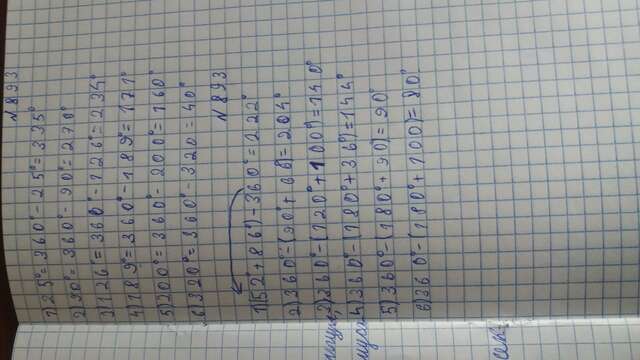 N893
1)25°=360°-25°=335°
2)90°=360°-90°=270°
3)126=360°-126°=234°
4)189°=360°-189°=171°
5)200°=360°-200°=160°
6)320°=360°-320=40°
N893
1)(52°+86°)-360°=222°
2)360°-(90°+66)=204°
3)360°-(120°+100°)=140°
4)360°-(180°+36°)=144°
5)360°-(180°+90)=90°
6)360°-(180°+100)=80°